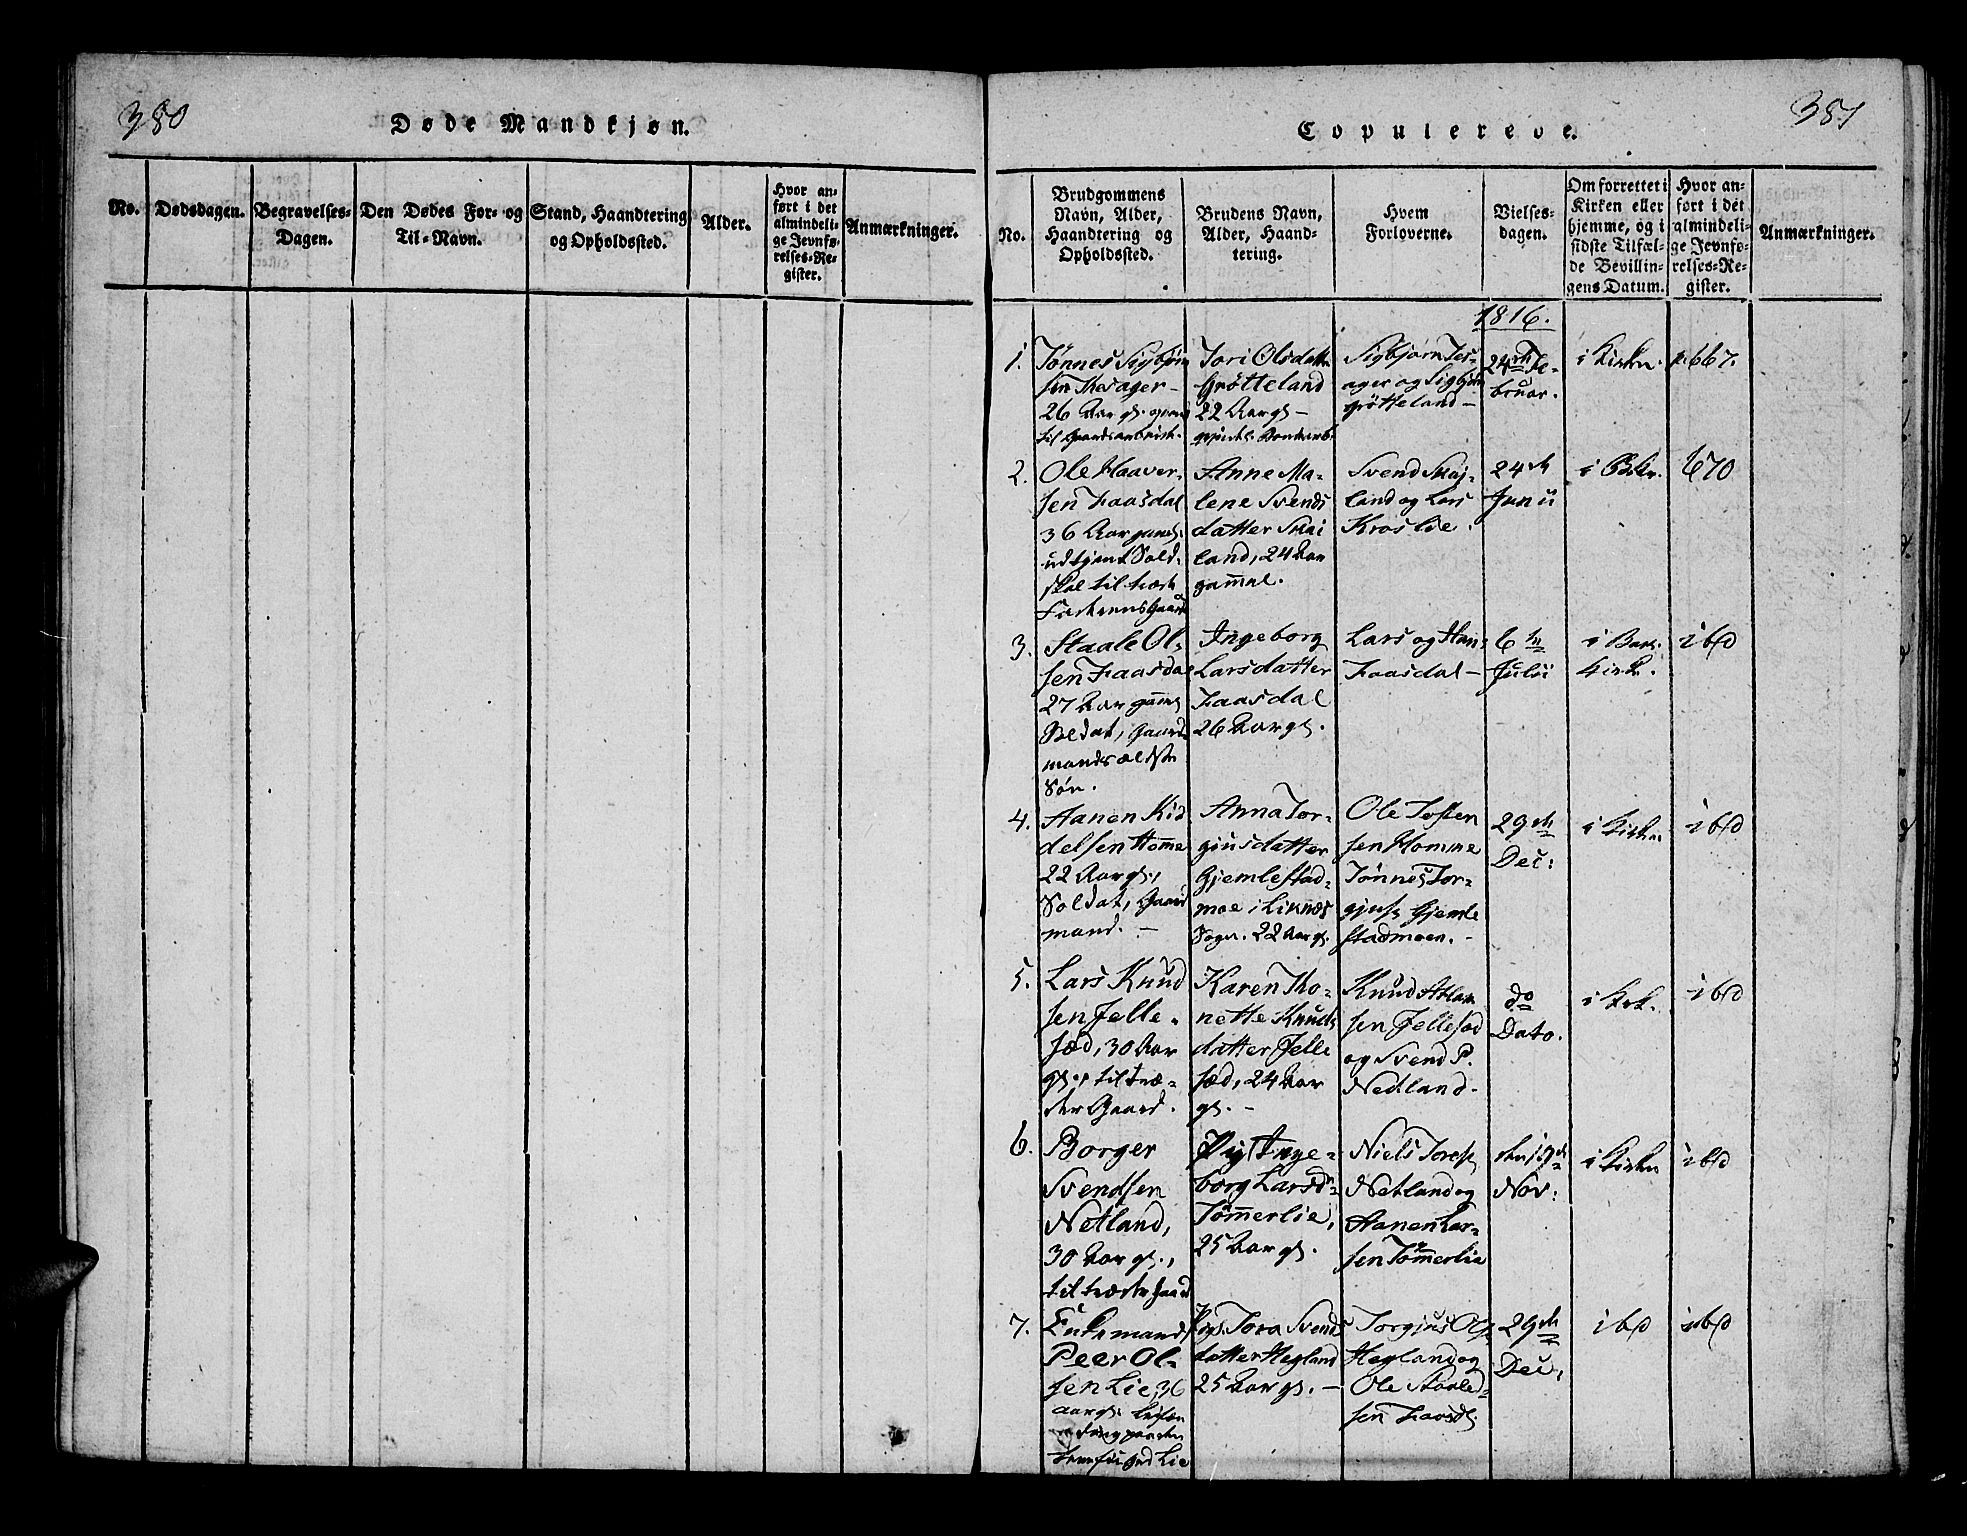 380
Døde Mandkjøn.
No.
Dødsdagen.
Begravelses-
Dagen.
Den Dødes For- og
Til-Navn.
Stand, Haandtering
og Opholdssted.
Alder.
Hvor an-
ført i det
almindeli-
ge Jevnfø-
relses-Re-
gister.
Anmærkninger.
381
Copulerede.
No.
Brudgommens
Navn, Alder,
Haandtering og
Opholdssted.
Brudens Navn,
Alder, Haand-
tering.
Hvem
Forloverne.
Vielses-
dagen.
Om forrettet i
Kirken eller
hjemme, og i
sidste Tilfæl-
de Bevillin-
gens Datum.
Hvor an-
ført i det
almindeli-
ge Jevnfø-
relses-Re-
gister.
Anmærkninger.
1816.
1.
Tønnes Sigbjørn
sen
26 Aar gl.
til
Tori Olsdatter
Grøtteland
22 Aar gl -
Sigbjørn Jes-
ager og Sigbjørn
Grøtteland -
24de Fe-
bruar.
i Kirken.
p. 667.
2.
Ole Haaver-
sen Faasdal
36 Aar gamel.
udtjent Sold.
skal til træde
Gaard
Anne Ma-
lene Svends
datter Skai
land, 24 Aar
gam̅el.
Svend Skaj-
land og Lars
Kroslie.
24de
Junii
670
3.
Staale Ol-
sen Faasdal
27 Aar gam̅el
Soldat, Gaard
mands ældste
Søn.
Ingeborg
Larsdatter
Faasdal
26 Aar gl.
Lars og Han
Faasdal -
6te
Julii
i Bak.
Kirk.
ibd
4.
Aanen Kid
delsen Hom̅e
22 Aar gl.,
Soldat, Gaard
mand. -
Anna Tor-
giusdatter
Gjemlestad-
moe i Liknes
Sogn. 22 Aar gl.
Ole Tosten
sen Homme
Tønnes Tor-
gjus. Gjemle
stadmoen. -
29de
Dec:
i Kirken
ibd
5.
Lars Knud
sen Jelle-
sæd, 30 Aar
gl., til træ-
der Gaard.
Karen Tho-
nette Knuds
datter Jelle
sæd, 24 Aar
gl. -
Knud Atlak
sen Jellesad
og Svend P.
Nedland.
do
Dato.
i Kirk.
ibd
6.
Borger
Svendsen
Netland,
30 Aar gl.,
til træde Gaard
Pig. Inge-
borg Larsd.
Tøm̅erlie,
25 Aar gl.
Niels Tores.
Netland og
Aanen Lar-
sen Tøm̅erlie
den
Nov:
i Kirken
ibd
7.
Enkemand
Peer Ol-
sen Lie, 36
aar gl.
Lie
Pig. Tora Svends
datter Hegland
25 Aar gl. -
Torgius Ols.
Hegland og
Ole Staaled-
sen Faasd.
29de
Dec,
ibd
ibd